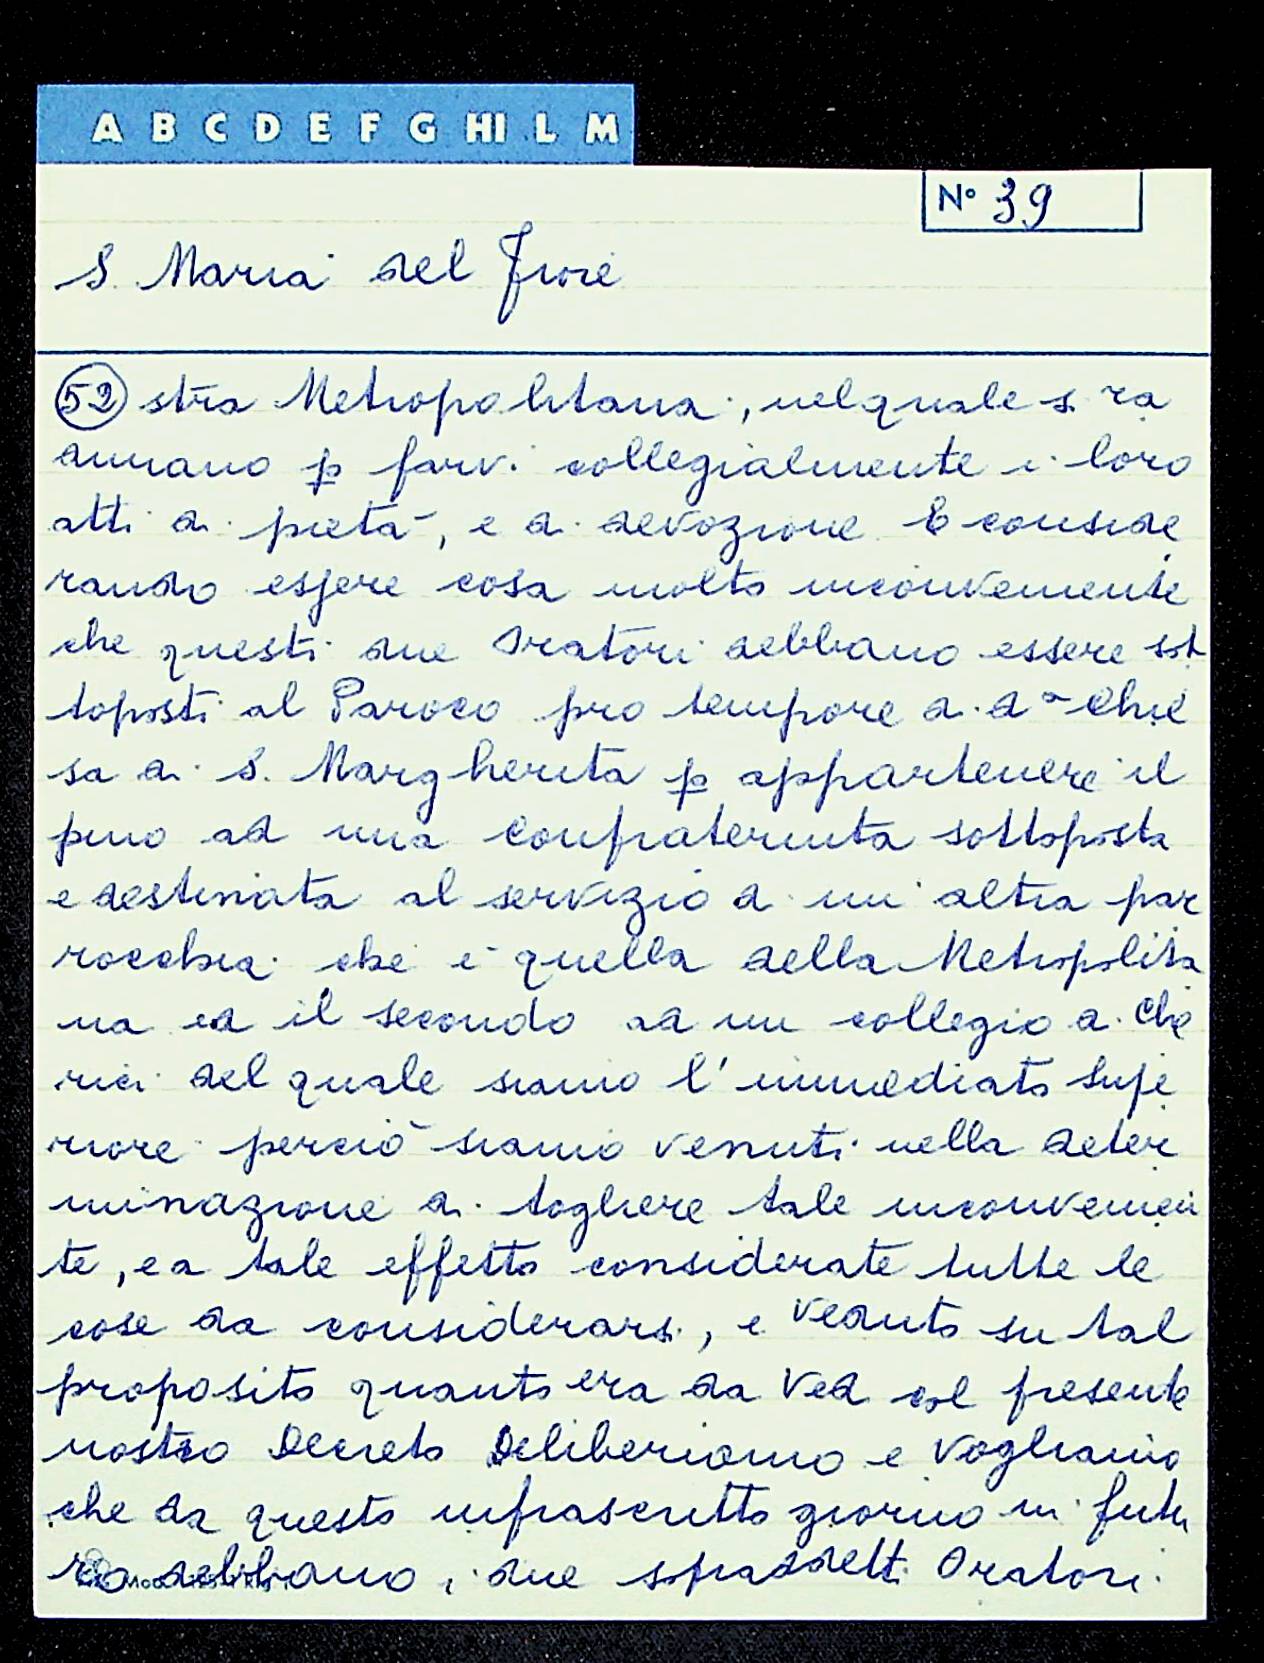 A B C D E F G HI L M
N° 39
S. Maria del Fiore
52 stra Metropolitana, nel quale si ra
dunano p farvi collegialmente i loro
atti di pietà, e di devozione. E conside
rando essere cosa molto inconveniente
che questi due Oratori debbano essere sot
toposti al Paroco pro tempore di da Chie
sa di S. Margherita p appartenere il
pmo ad una Confraternita sottoposta
e destinata al servizio di un altra par
rocchia che è quella della Metropolita
na ed il secondo ad un collegio di Che
rici del quale siamo l'immediato Supe
riore perciò siamo venuti nella deter
minazione di togliere tale inconvenien
te, e a tale effetto considerate tutte le
cose da considerarsi, e veduto su tal
proposito quanto era da ved col presente
nostro Decreto Deliberiamo e Vogliamo
che da questo infrascritto giorno in futu
ro debbano i due spraddetti Oratori